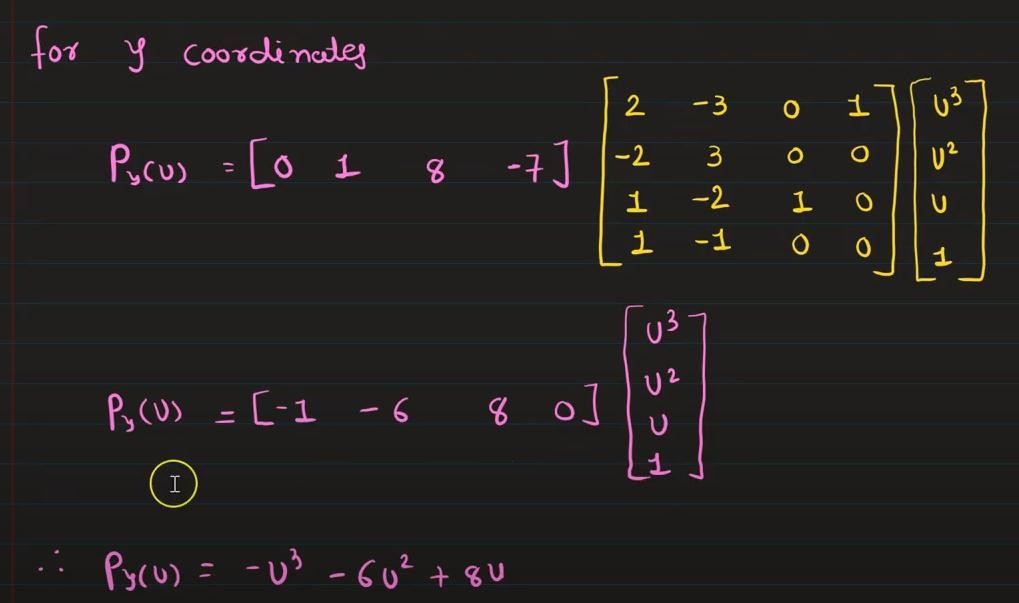 for y coordinates
Py(U) = [0 1 8 -7] [2 -3 0 1] [U³]
[-2 3 0 0] [U²]
[1 -2 1 0] [U]
[1 -1 0 0] [1]
Py(U) = [-1 -6 8 0] [U³ U² U 1]
∴ Py(U) = -U³ - 6U² + 8U